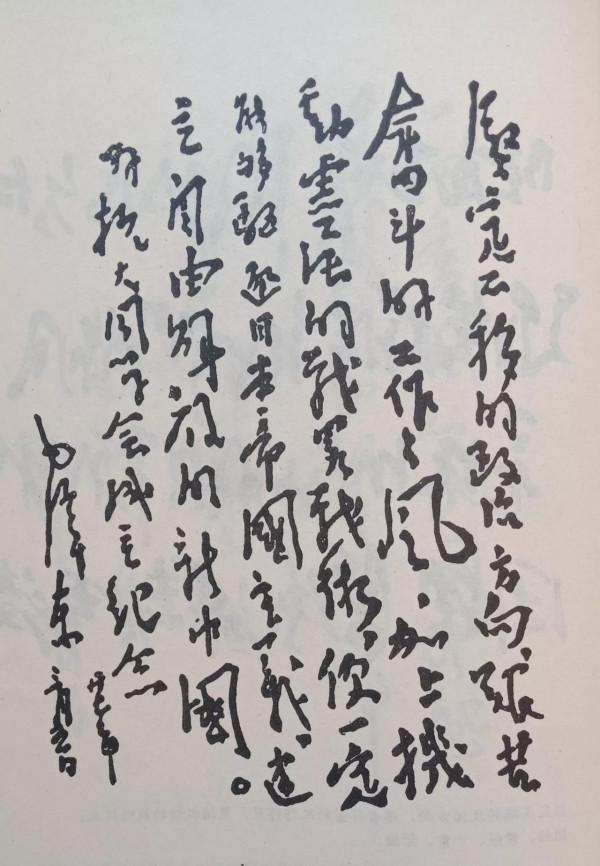 堅定不移的政治方向，艱苦
奮斗的工作々風，加上機
動灵活的戰畧戰術，便一定
能够驅逐日本帝國主義，建
立自由解放的新中國。
與抗大同学会成立紀念
毛澤東
廿七年
三月五日